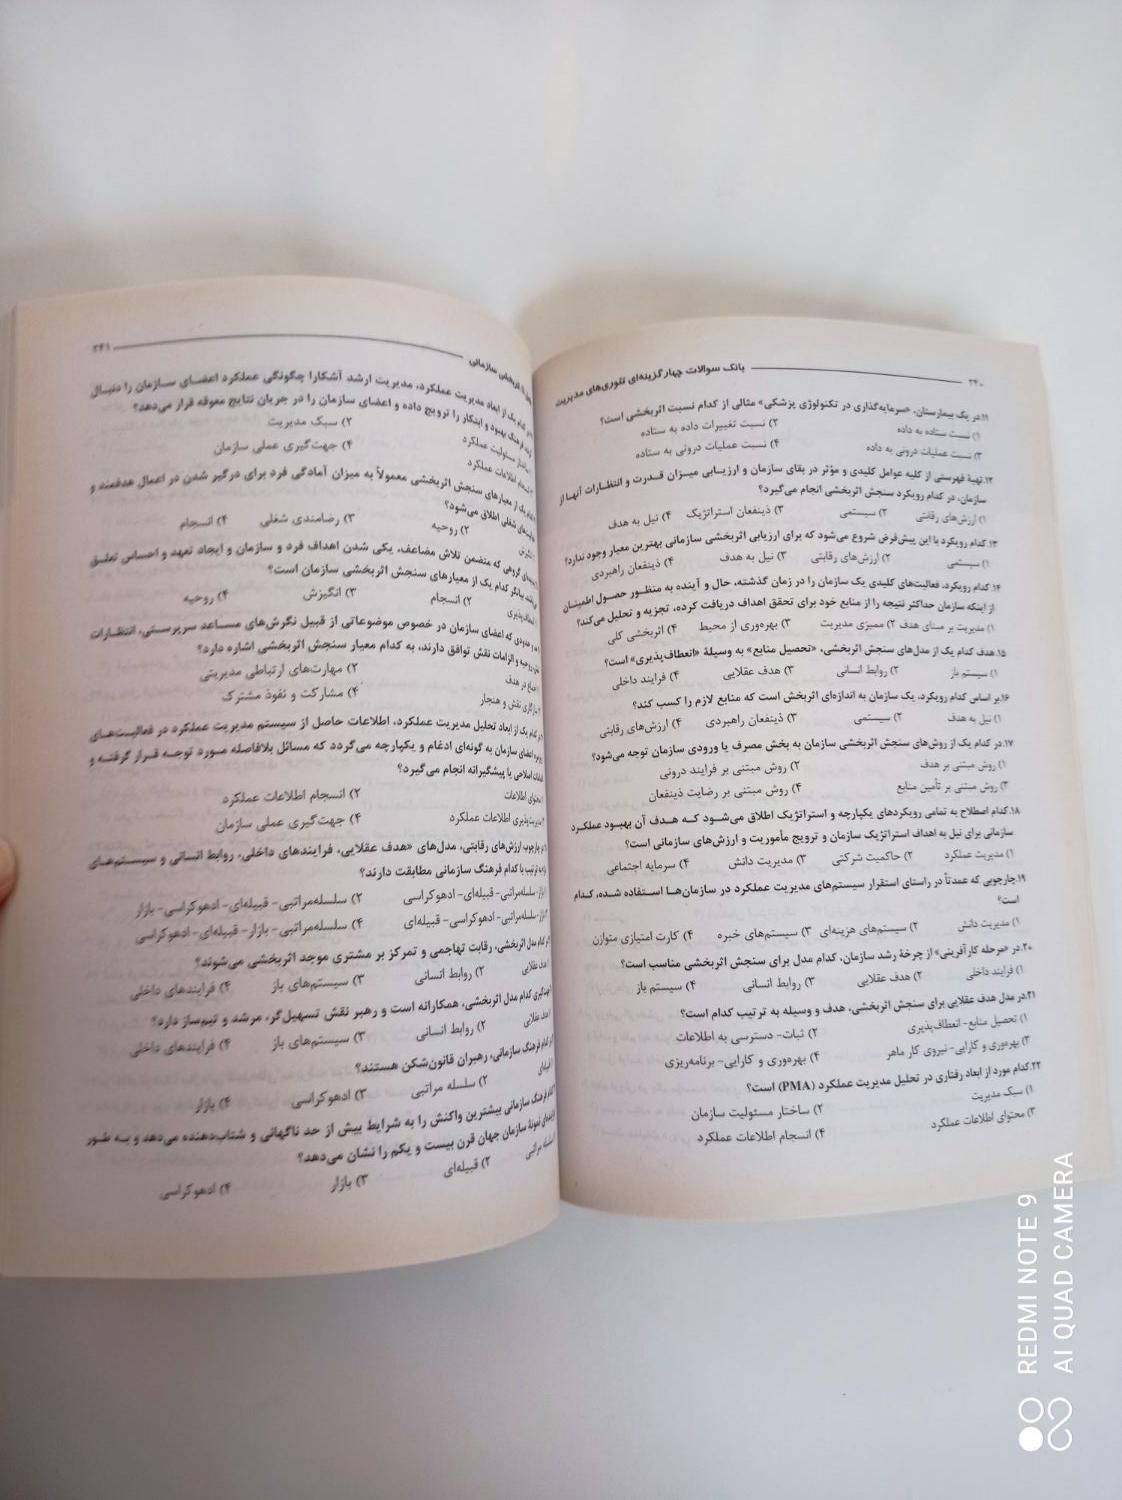 ۲۴۰
بانک سوالات چهارگزینه‌ای تئوری‌های مدیریت
۱۱.در یک بیمارستان، «سرمایه‌گذاری در تکنولوژی پزشکی» مثالی از کدام نسبت اثربخشی است؟
۱) نسبت ستاده به داده ۲) نسبت تغییرات داده به ستاده
۳) نسبت عملیات درونی به داده ۴) نسبت عملیات درونی به ستاده
۱۲.تهیهٔ فهرستی از کلیه عوامل کلیدی و مؤثر در بقای سازمان و ارزیـابی میـزان قـدرت و انتظـارات آنهـا از
سازمان، در کدام رویکرد سنجش اثربخشی انجام می‌گیرد؟
۱) ارزش‌های رقابتی ۲) سیستمی ۳) ذینفعان استراتژیک ۴) نیل به هدف
۱۳.کدام رویکرد با این پیش‌فرض شروع می‌شود که برای ارزیابی اثربخشی سازمانی بهترین معیار وجود ندارد؟
۱) سیستمی ۲) ارزش‌های رقابتی ۳) نیل به هدف ۴) ذینفعان راهبردی
۱۴.کدام رویکرد، فعالیت‌های کلیدی یک سازمان را در زمان گذشته، حال و آینده به منظـور حصـول اطمینـان
از اینکه سازمان حداکثر نتیجه را از منابع خود برای تحقق اهداف دریافت کرده، تجزیه و تحلیل می‌کند؟
۱) مدیریت بر مبنای هدف ۲) ممیزی مدیریت ۳) بهره‌وری از محیط ۴) اثربخشی کلی
۱۵.هدف کدام یک از مدل‌های سنجش اثربخشی، «تحصیل منابع» به وسیلهٔ «انعطاف‌پذیری» است؟
۱) سیستم باز ۲) روابط انسانی ۳) هدف عقلایی ۴) فرایند داخلی
۱۶.بر اساس کدام رویکرد، یک سازمان به اندازه‌ای اثربخش است که منابع لازم را کسب کند؟
۱) نیل به هدف ۲) سیستمی ۳) ذینفعان راهبردی ۴) ارزش‌های رقابتی
۱۷.در کدام یک از روش‌های سنجش اثربخشی سازمان به بخش مصرف یا ورودی سازمان توجه می‌شود؟
۱) روش مبتنی بر هدف ۲) روش مبتنی بر فرایند درونی
۳) روش مبتنی بر تأمین منابع ۴) روش مبتنی بر رضایت ذینفعان
۱۸.کدام اصطلاح به تمامی رویکردهای یکپارچه و استراتژیک اطلاق می‌شود کـه هـدف آن بهبـود عملکـرد
سازمانی برای نیل به اهداف استراتژیک سازمان و ترویج مأموریت و ارزش‌های سازمانی است؟
۱) مدیریت عملکرد ۲) حاکمیت شرکتی ۳) مدیریت دانش ۴) سرمایه اجتماعی
۱۹.چارچوبی که عمدتاً در راستای استقرار سیستم‌های مدیریت عملکرد در سازمان‌هـا اسـتفاده شـده، کـدام
است؟
۱) مدیریت دانش ۲) سیستم‌های هزینه‌ای ۳) سیستم‌های خبره ۴) کارت امتیازی متوازن
۲۰.در «مرحله کارآفرینی» از چرخهٔ رشد سازمان، کدام مدل برای سنجش اثربخشی مناسب است؟
۱) فرایند داخلی ۲) هدف عقلایی ۳) روابط انسانی ۴) سیستم باز
۲۱.در مدل هدف عقلایی برای سنجش اثربخشی، هدف و وسیله به ترتیب کدام است؟
۱) تحصیل منابع- انعطاف‌پذیری ۲) ثبات- دسترسی به اطلاعات
۳) بهره‌وری و کارایی- نیروی کار ماهر ۴) بهره‌وری و کارایی- برنامه‌ریزی
۲۲.کدام مورد از ابعاد رفتاری در تحلیل مدیریت عملکرد (PMA) است؟
۱) سبک مدیریت ۲) ساختار مسئولیت سازمان
۳) محتوای اطلاعات عملکرد ۴) انسجام اطلاعات عملکرد
اثربخشی سازمانی ۲۴۱
کدام یک از ابعاد مدیریت عملکرد، مدیریت ارشد آشکارا چگونگی عملکرد اعضـای سـازمان را دنبـال
فرهنگ بهبود و ابتکار را ترویج داده و اعضای سازمان را در جریان نتایج معوقه قرار می‌دهد؟
مسئولیت عملکرد ۲) سبک مدیریت
اطلاعات عملکرد ۴) جهت‌گیری عملی سازمان
یک از معیارهای سنجش اثربخشی معمولاً به میزان آمادگی فرد برای درگیر شدن در اعمال هدفمند و
شغلی اطلاق می‌شود؟
۲) روحیه ۳) رضامندی شغلی ۴) انسجام
گروهی که متضمن تلاش مضاعف، یکی شدن اهداف فرد و سازمان و ایجاد تعهد و احساس تعلـق
بیانگر کدام یک از معیارهای سنجش اثربخشی سازمان است؟
۲) انسجام ۳) انگیزش ۴) روحیه
حدودی که اعضای سازمان در خصوص موضوعاتی از قبیل نگرش‌های مسـاعد سرپرسـتی، انتظـارات
و الزامات نقش توافق دارند، به کدام معیار سنجش اثربخشی اشاره دارد؟
در هدف ۲) مهارت‌های ارتباطی مدیریتی
نقش و هنجار ۴) مشارکت و نفوذ مشترک
کدام یک از ابعاد تحلیل مدیریت عملکرد، اطلاعات حاصل از سیستم مدیریت عملکرد در فعالیـت‌هـای
اعضای سازمان به گونه‌ای ادغام و یکپارچه می‌گردد که مسائل بلافاصله مـورد توجـه قـرار گرفتـه و
اصلاحی یا پیشگیرانه انجام می‌گیرد؟
محتوای اطلاعات ۲) انسجام اطلاعات عملکرد
اطلاعات عملکرد ۴) جهت‌گیری عملی سازمان
چارچوب ارزش‌های رقابتی، مدل‌های «هدف عقلایی، فرایندهای داخلی، روابط انسانی و سیسـتم‌هـای
به ترتیب با کدام فرهنگ سازمانی مطابقت دارند؟
سلسله‌مراتبی- قبیله‌ای- ادهوکراسی ۲) سلسله‌مراتبی- قبیله‌ای- ادهوکراسی- بازار
سلسله‌مراتبی- ادهوکراسی- قبیله‌ای ۴) سلسله‌مراتبی- بازار- قبیله‌ای- ادهوکراسی
کدام مدل اثربخشی، رقابت تهاجمی و تمرکز بر مشتری موجد اثربخشی می‌شوند؟
هدف عقلایی ۲) روابط انسانی ۳) سیستم‌های باز ۴) فرایندهای داخلی
جهت‌گیری کدام مدل اثربخشی، همکارانه است و رهبر نقش تسهیل‌گر، مرشد و تیم‌ساز دارد؟
هدف عقلایی ۲) روابط انسانی ۳) سیستم‌های باز ۴) فرایندهای داخلی
کدام فرهنگ سازمانی، رهبران قانون‌شکن هستند؟
۲) سلسله مراتبی ۳) ادهوکراسی ۴) بازار
فرهنگ سازمانی بیشترین واکنش را به شرایط بیش از حد ناگهانی و شتاب‌دهنده می‌دهد و بـه طـور
نمونهٔ سازمان جهان قرن بیست و یکم را نشان می‌دهد؟
سلسله مراتبی ۲) قبیله‌ای ۳) بازار ۴) ادهوکراسی
REDMI NOTE 9
AI QUAD CAMERA